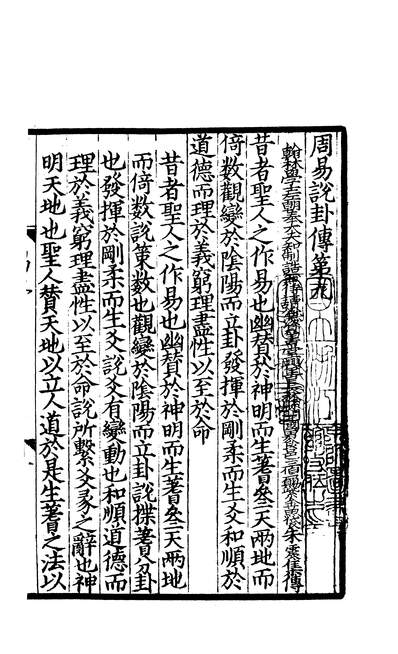 周易說卦傳第九
翰林學士左朝奉大夫知制誥兼侍讀兼資善堂翊善長林縣開國食邑三百戶賜紫金魚袋朱震集傳
昔者聖人之作易也幽贊於神明而生蓍參天兩地而
倚數觀變於陰陽而立卦發揮於剛柔而生爻和順於
道德而理於義窮理盡性以至於命
昔者聖人之作易也幽贊於神明而生蓍參天兩地
而倚數說策數也觀變於陰陽而立卦說揲蓍分卦
也發揮於剛柔而生爻說爻有變動也和順道德而
理於義窮理盡性以至於命說所繫爻彖之辭也神
明天地也聖人贊天地以立人道於是生蓍之法以